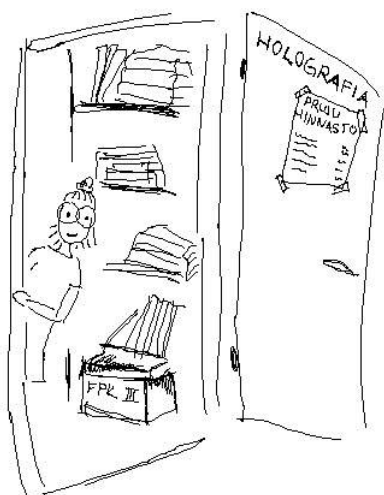 HOLOGRAFIA
PRUJU
HINNASTO
FPK III